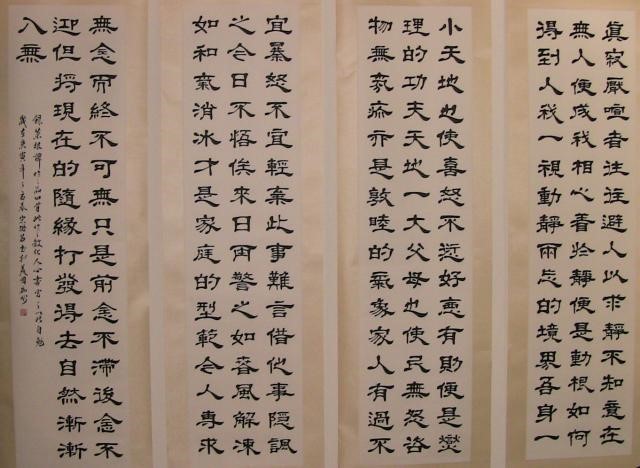 眞寂厭喧者往往避人以求靜不知意在
無人便成我相心着於靜便是動根如何
得到人我一視動靜兩忘的境界吾身一
小天地也使喜怒不愆好惡有則便是燮
理的功夫天地一大父母也使民無怨咨
物無氛疹亦是敦睦的氣象家人有過不
宜暴怒不宜輕棄此事難言借他事隱諷
之今日不悟俟來日再警之如春風解凍
如和氣消冰才是家庭的型範今人專求
無念而終不可無只是前念不滯後念不
迎但將現在的隨緣打發得去自然漸漸
入無
錄菜根譚
歲在庚寅年